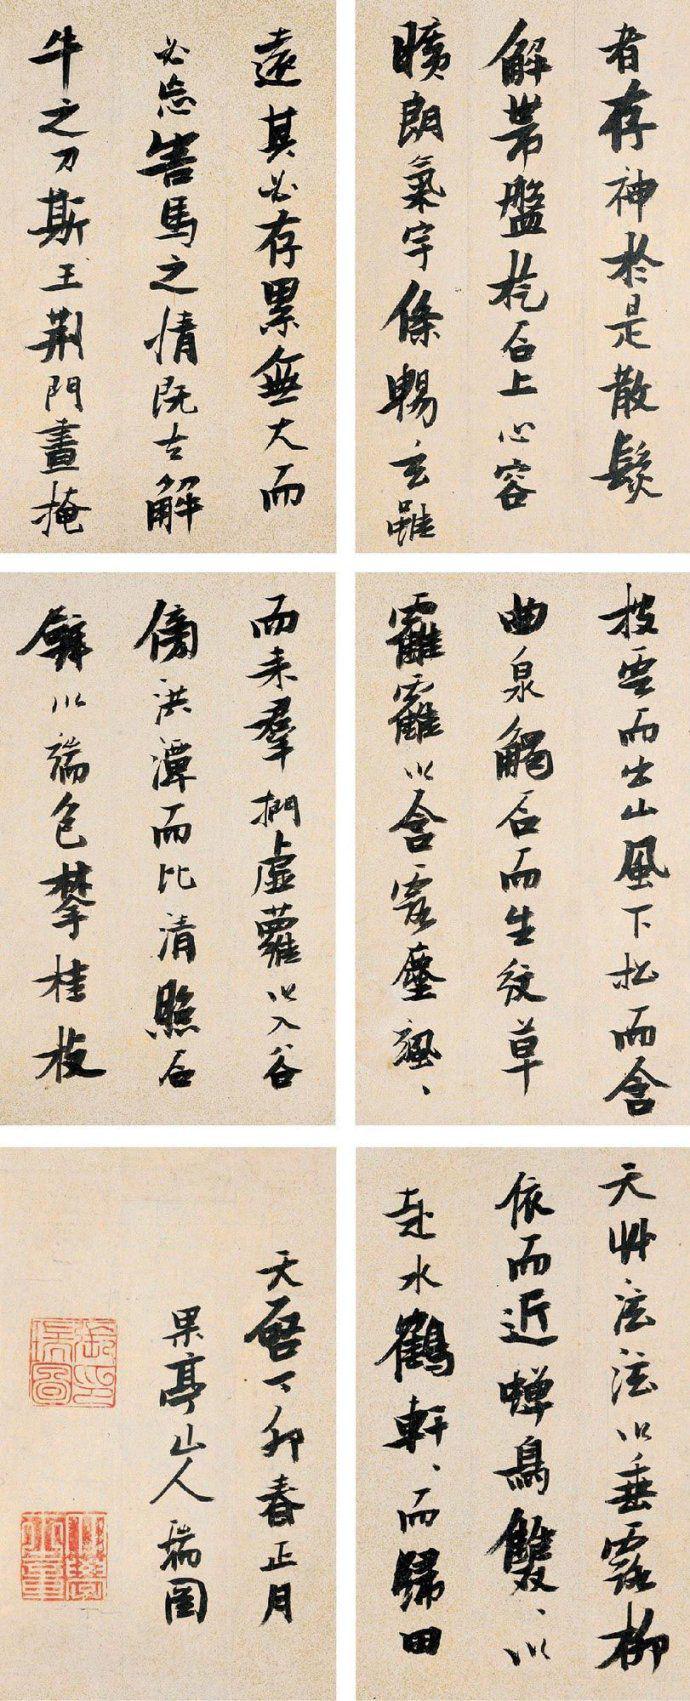 者存神於是散髮
解帶盤桓石上心容
曠朗氣宇條暢玄雖
遠其必存累無大而
必忘害馬之情既去解
牛之刀斯王荊門晝掩
披雲而出山風下松而含
曲泉觸石而生紋草
靃靃以含露飆、
而來羣捫虛蘿以入谷
傍洪潭而比清照石
以端色攀桂枝
天艸泫泫以垂露柳
依而近蟬鳥雙、以
赴水鶴軒、而歸田
天啓丁卯春正月
果亭山人瑞图
張瑞圖印